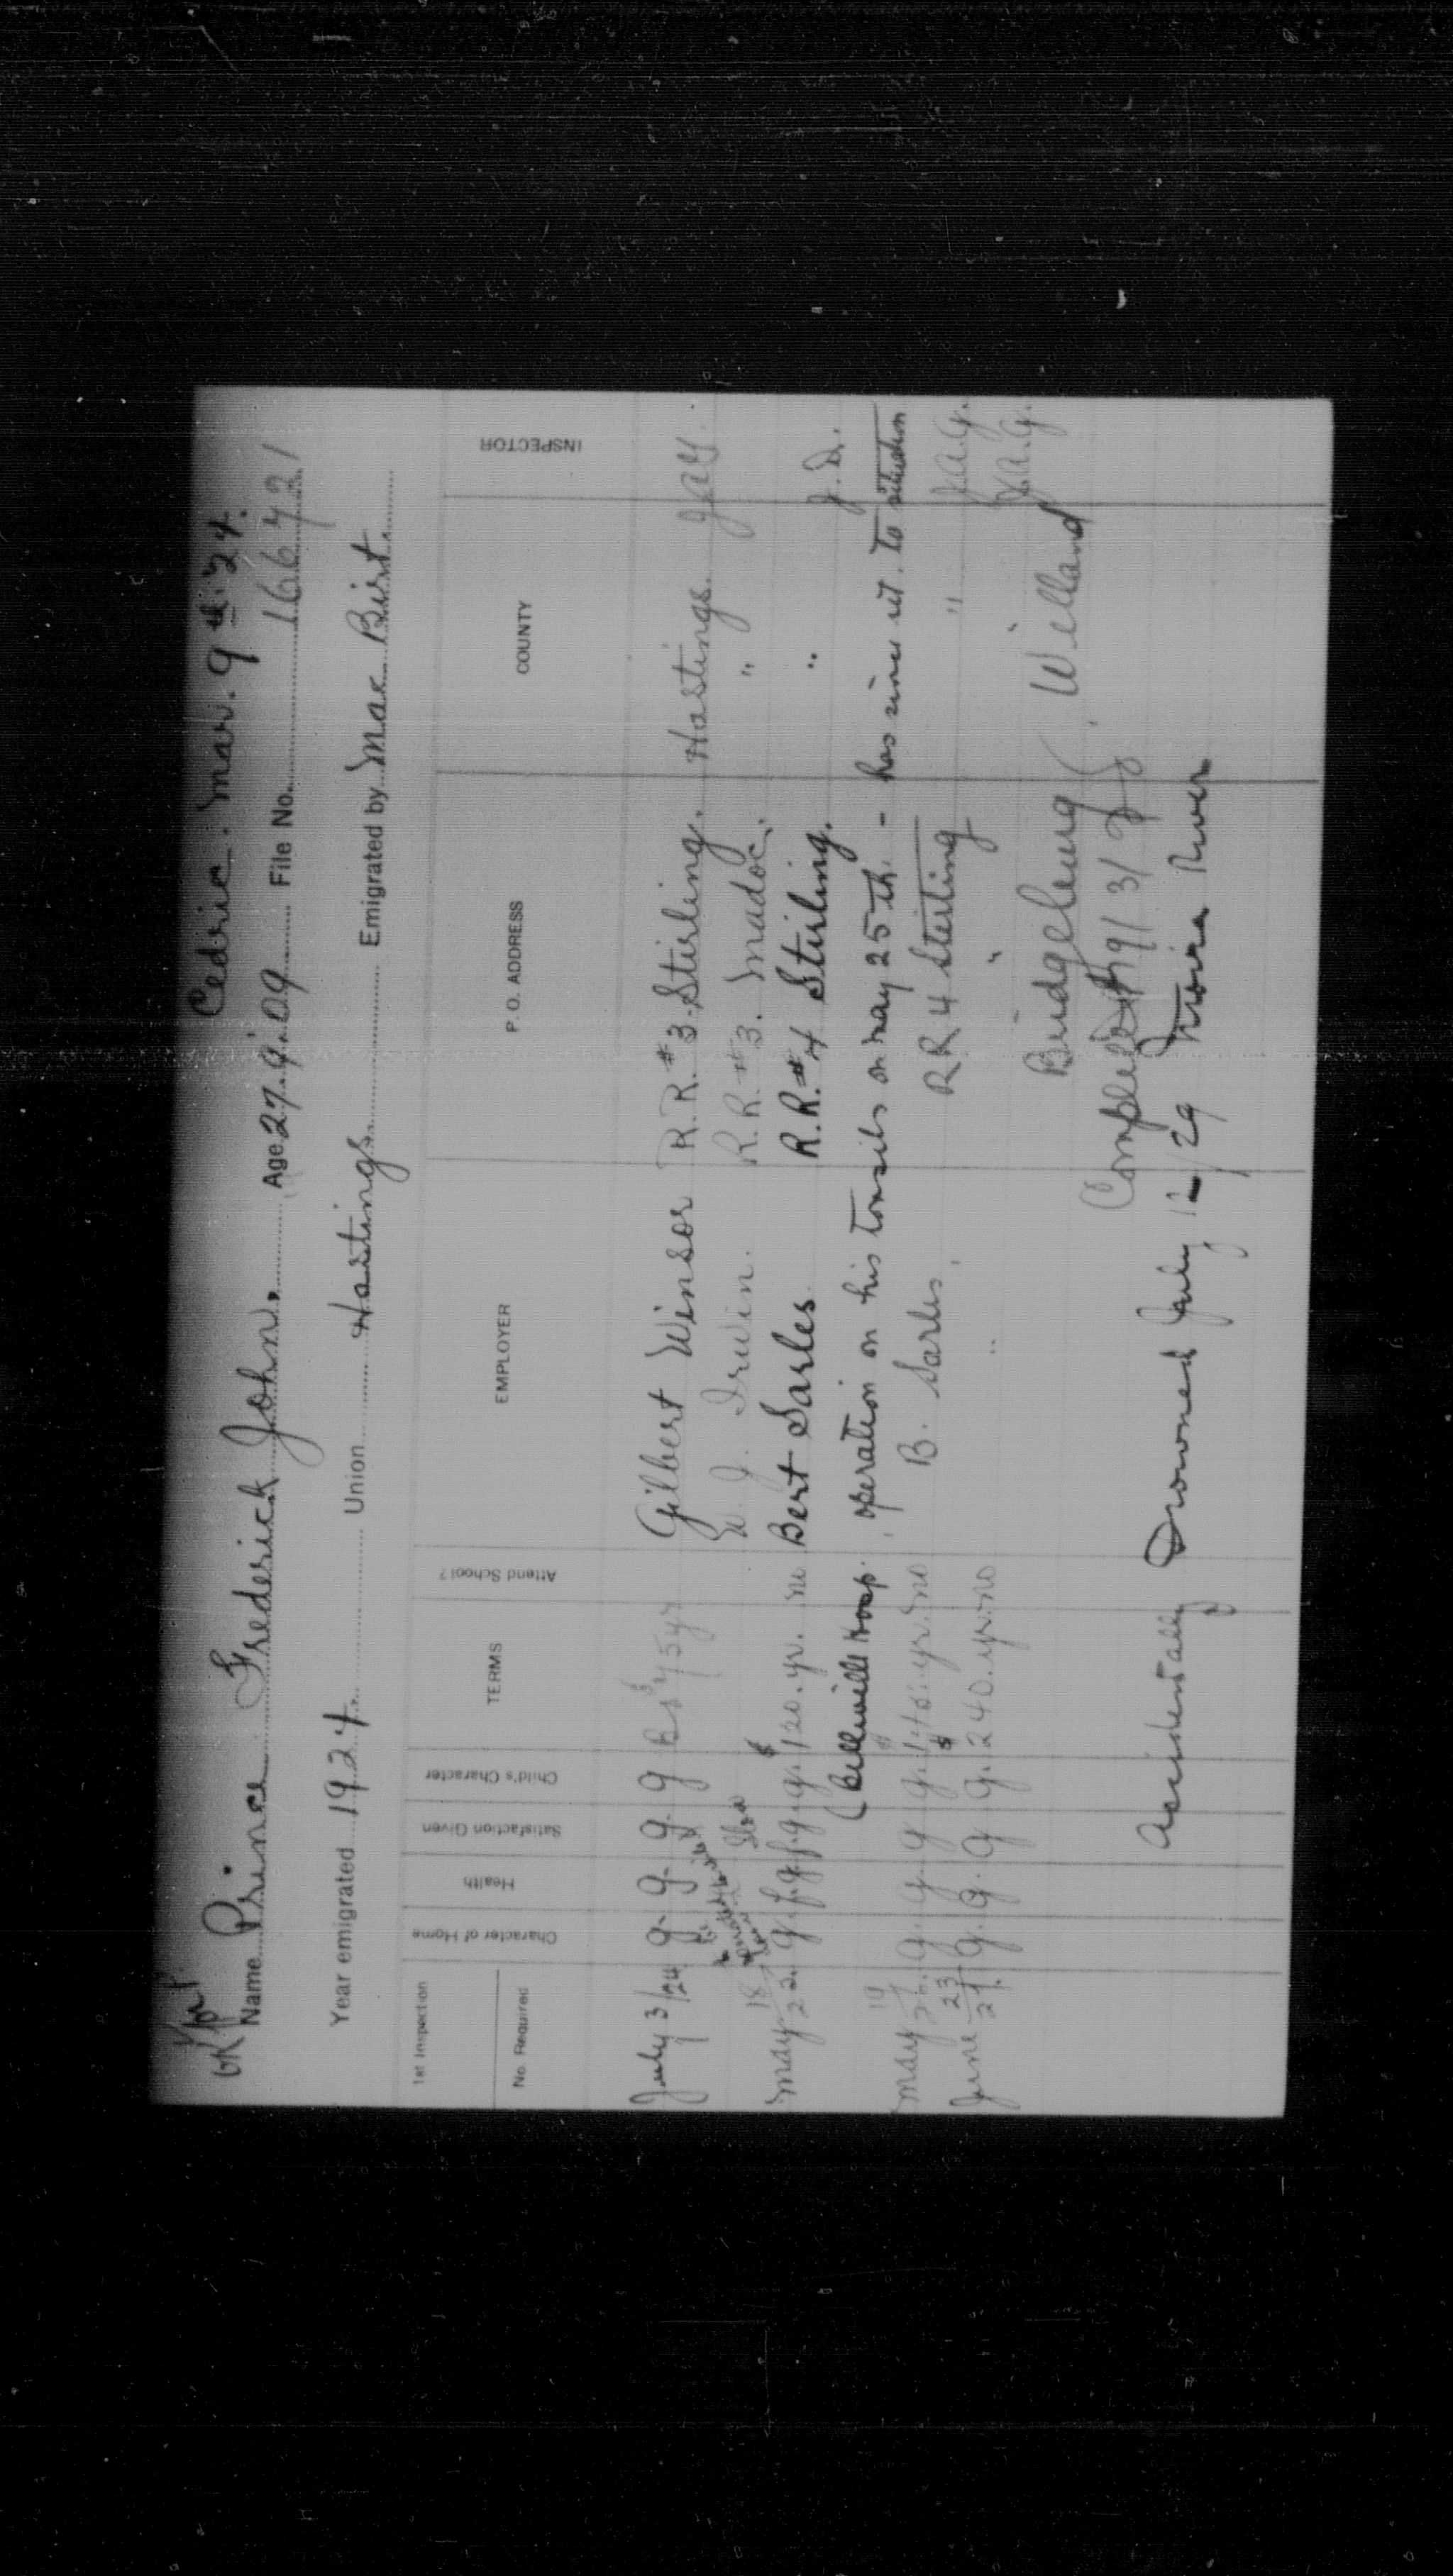 Cedric. Mar. 9th '24.
Name Prince Frederick John. Age 27.9.'09 File No. 166721
Year emigrated 1924. Union Hastings Emigrated by Mac. Birt.
1st Inspection
No. Required
Character of Home
Health
Satisfaction Given
Child's Character
TERMS
Attend School?
EMPLOYER
P. O. ADDRESS
COUNTY
INSPECTOR
July 3/24 g. g. g. g Gilbert Winsor R.R.#3. Stirling. Hastings.
W. J. Irwin. R.R.#3. Madoc. "
May 18 g. f. g. $120. yr. no Bert Sarles R.R.#4 Stirling. " J.D.
(Belleville Hosp. operation on his tonsils on May 25th. - has since ret. to situation
May 19/26. g. g. g g. yr. no B. Sarles. RR 4 Sterling " J.A.G.
June 23/27. g. g. g g. $240. yr. no " " J.A.G.
Bridgeburg Welland
Completed 19/3/28
Accidentally Drowned July 12/29 Moira River